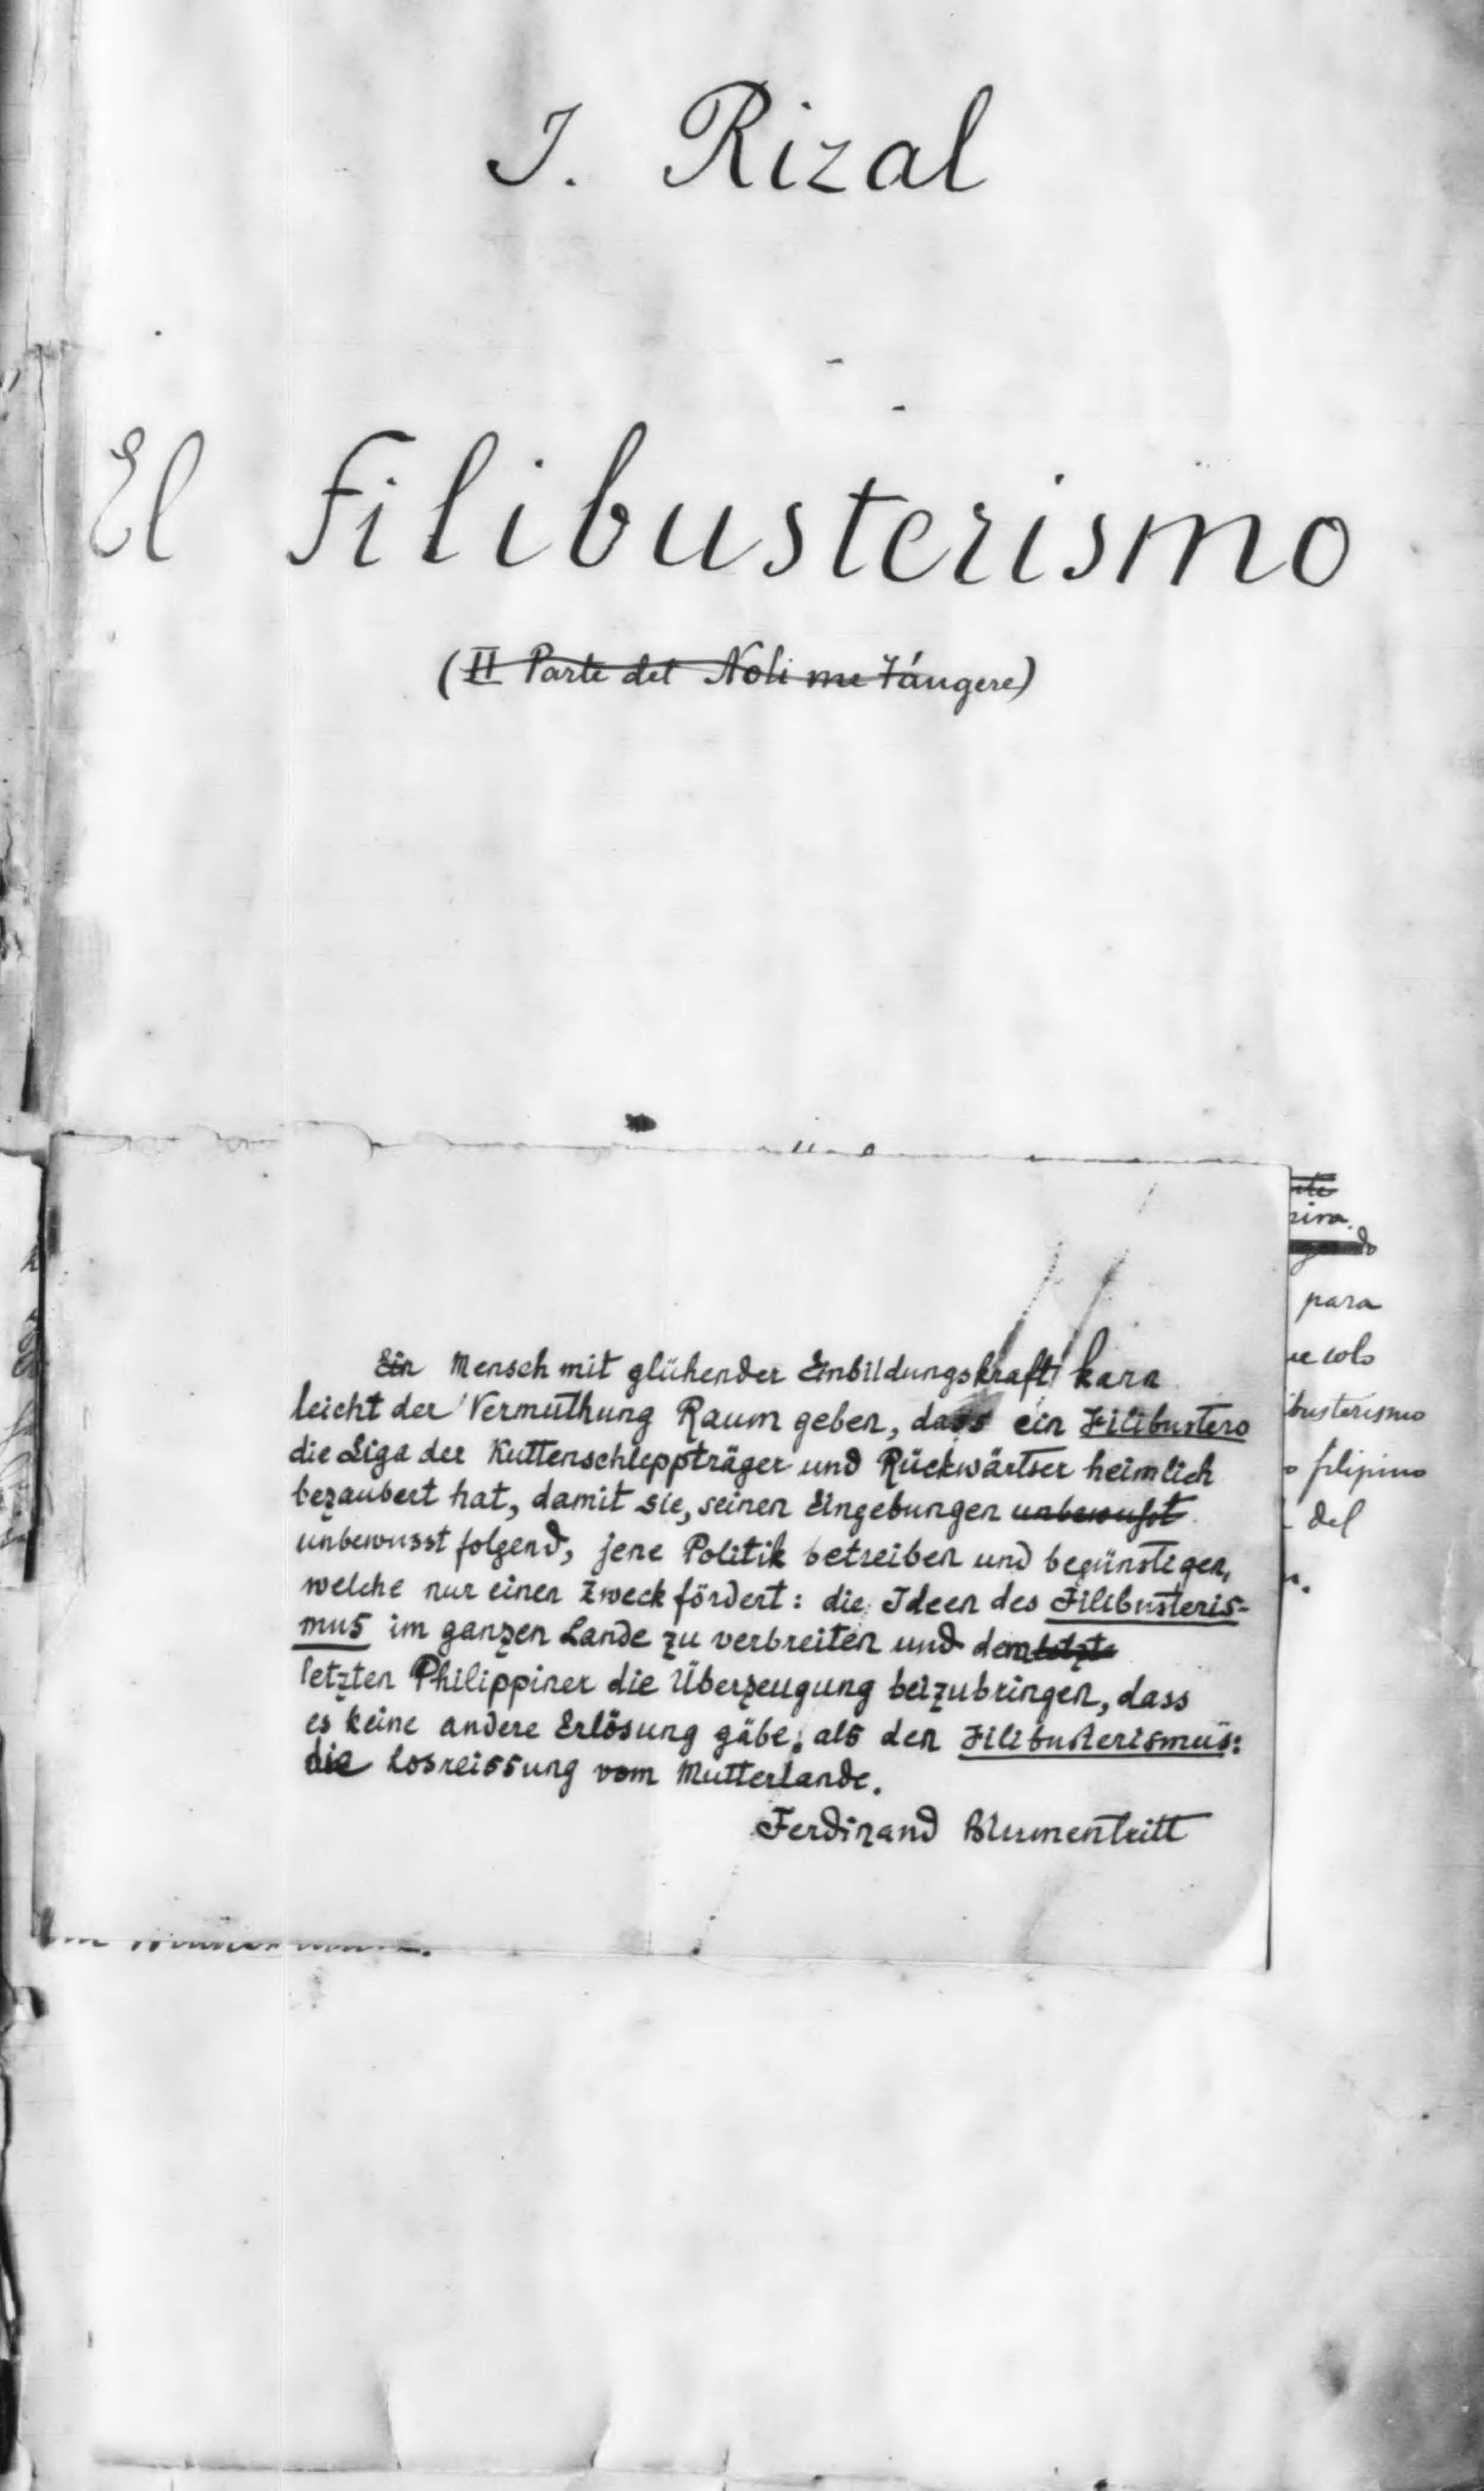 J. Rizal
El Filibusterismo
(II Parte del Noli me tángere)
Ein Mensch mit glühender Einbildungskraft kann
leicht der Vermuthung Raum geben, dass ein Filibustero
die Liga der Kuttenschleppträger und Rückwärtser heimlich
bezaubert hat, damit sie, seinen Eingebungen unbewußt
unbewusst folgend, jene Politik betreiben und begünstigen,
welche nur einen Zweck fördert: die Ideen des Filibusteris-
mus im ganzen Lande zu verbreiten und dem letzt
letzten Philippiner die Überzeugung beizubringen, dass
es keine andere Erlösung gäbe, als den Filibusterismus:
die Losreissung vom Mutterlande.
Ferdinand Blumentritt
para
ibusterismo
o filipino
del